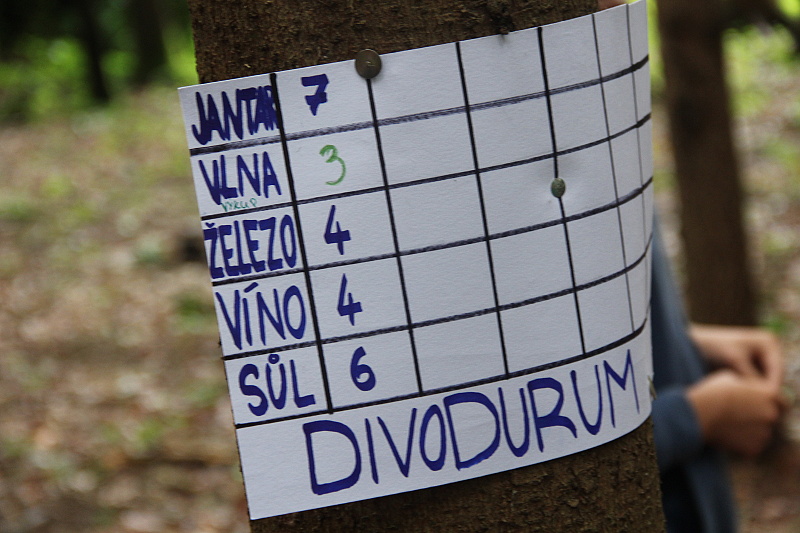 JANTAR 7
VLNA 3
výkup
ŽELEZO 4
VÍNO 4
SŮL 6
DIVODURUM